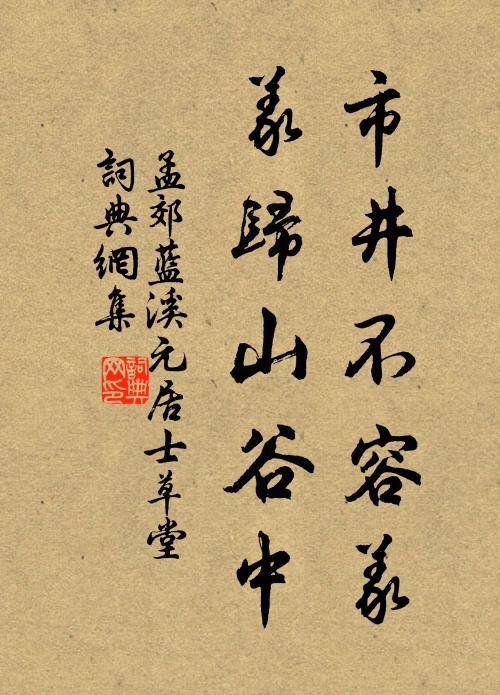 市井不容義
義歸山谷中
孟郊藍溪元居士草堂
詞典網集
詞典網印